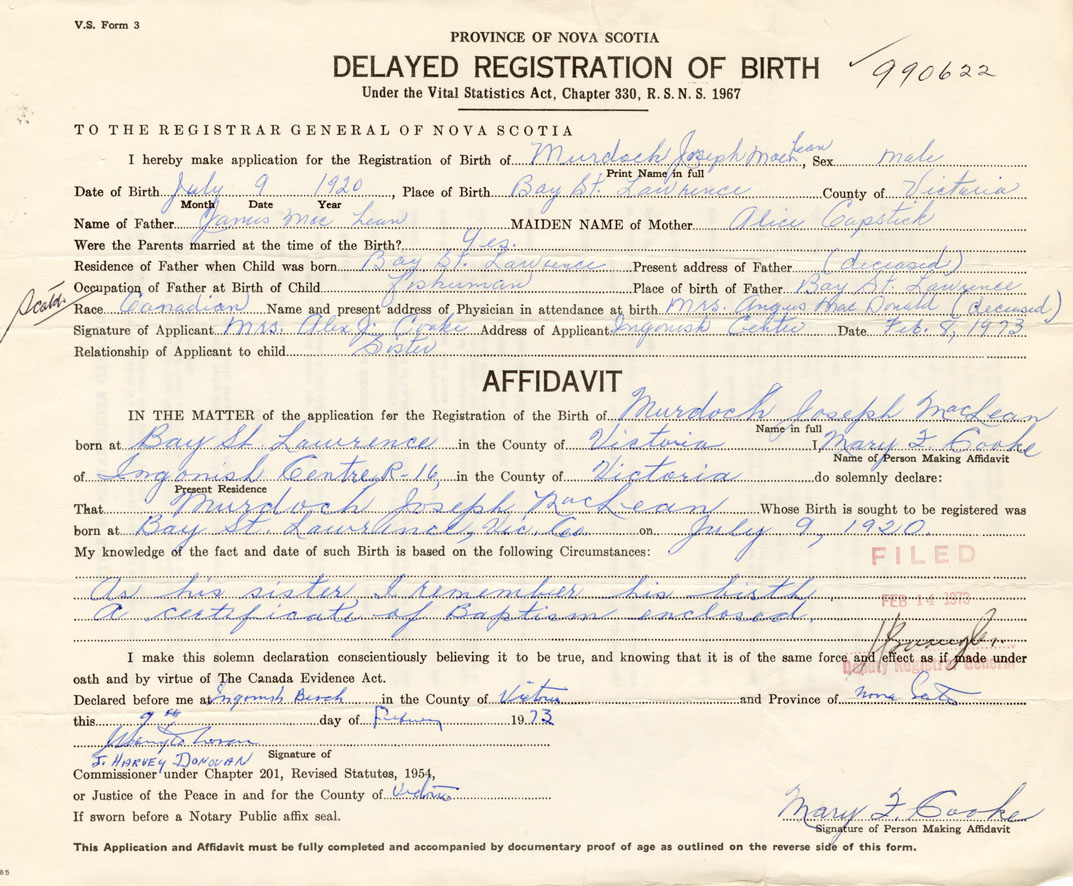 V.S. Form 3
PROVINCE OF NOVA SCOTIA
DELAYED REGISTRATION OF BIRTH
990622
Under the Vital Statistics Act, Chapter 330, R. S. N. S. 1967
TO THE REGISTRAR GENERAL OF NOVA SCOTIA
I hereby make application for the Registration of Birth of Murdoch Joseph MacLean, Sex male
Print Name in full
Date of Birth July 9 1920, Place of Birth Bay St. Lawrence County of Victoria
Month Date Year
Name of Father James Mac Lean MAIDEN NAME of Mother Alice Capstick
Were the Parents married at the time of the Birth? Yes.
Residence of Father when Child was born Bay St. Lawrence Present address of Father (deceased)
Occupation of Father at Birth of Child Fisherman Place of birth of Father Bay St. Lawrence
Race Canadian Name and present address of Physician in attendance at birth Mrs. Angus Mac Donald (deceased)
Signature of Applicant Mrs. Alex J. Cooke Address of Applicant Ingonish Center Date Feb. 8, 1973
Relationship of Applicant to child Sister
AFFIDAVIT
IN THE MATTER of the application for the Registration of the Birth of Murdoch Joseph MacLean
Name in full
born at Bay St Lawrence in the County of Victoria I, Mary F Cooke
Name of Person Making Affidavit
of Ingonish Centre, R-16, in the County of Victoria do solemnly declare:
Present Residence
That Murdoch Joseph MacLean Whose Birth is sought to be registered was
born at Bay St. Lawrence, Vic. Co. on July 9, 1920.
My knowledge of the fact and date of such Birth is based on the following Circumstances:
FILED
As his sister I remember his birth.
FEB 14 1973
A certificate of Baptism enclosed.
I make this solemn declaration conscientiously believing it to be true, and knowing that it is of the same force and effect as if made under
Deputy Registrar General
oath and by virtue of The Canada Evidence Act.
Declared before me at Ingonish Beach in the County of Victoria and Province of Nova Scotia
this 9th day of February 1973
J. HARVEY DONOVAN Signature of
Commissioner under Chapter 201, Revised Statutes, 1954,
or Justice of the Peace in and for the County of Victoria
If sworn before a Notary Public affix seal.
Mary F. Cooke
Signature of Person Making Affidavit
This Application and Affidavit must be fully completed and accompanied by documentary proof of age as outlined on the reverse side of this form.